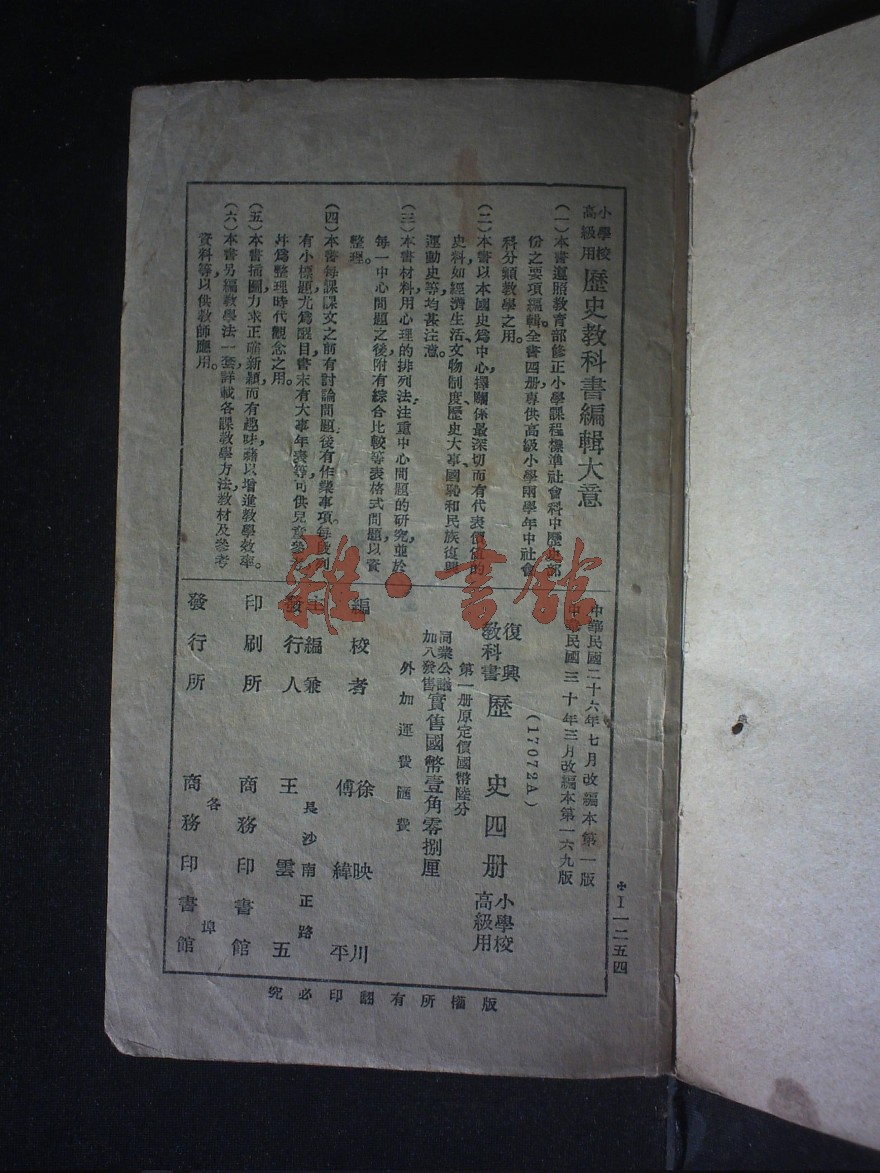 小學校高級用 歷史教科書編輯大意
(一)本書遵照教育部修正小學課程標準社會科中歷史部
份之要項編輯。全書四册,專供高級小學兩學年中社會
科分類教學之用。
(二)本書以本國史爲中心,擇關係最深切而有代表價值的
史料,如經濟生活、文物制度、歷史大事、國恥和民族復興
運動史等,均甚注意。
(三)本書材料用心理的排列法,注重中心問題的研究,並於
每一中心問題之後,附有綜合比較等表格式問題,以資
整理。
(四)本書每課課文之前有討論問題,後有作業事項。每段列
有小標題,尤爲醒目。書末有大事年表等,可供兒童參考,
幷爲整理時代觀念之用。
(五)本書插圖力求正確新穎而有趣味,藉以增進教學效率。
(六)本書另編教學法一套,詳載各課教學方法、教材及參考
資料等,以供教師應用。
中華民國二十六年七月改編本第一版
中華民國三十年三月改編本第一六九版
(17072A)
復興教科書 歷史四册 小學校高級用
第一册原定價國幣陸分
同業公議加八發售 實售國幣壹角零捌厘
外加運費匯費
編校者 徐映川 傅緯平
主編兼發行人 長沙南正路 王雲五
印刷所 商務印書館
發行所 各埠 商務印書館
版權所有翻印必究
✠I一二五四
雜·書館